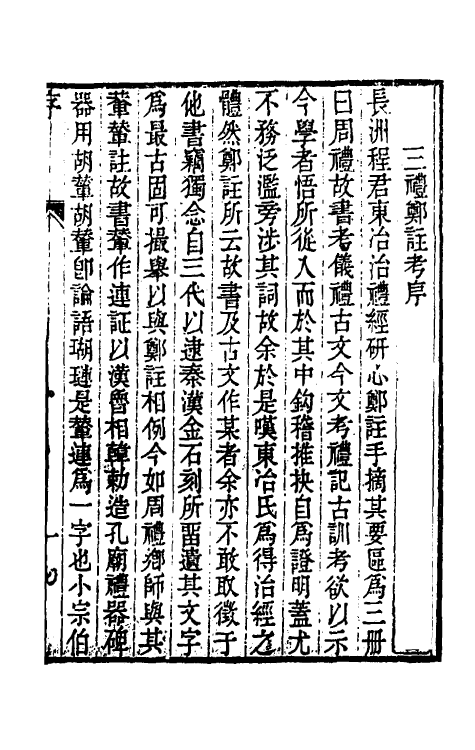 三禮鄭註考序
長洲程君東冶治禮經研心鄭註手摘其要區為三冊
曰周禮故書考儀禮古文今文考禮記古訓考欲以示
今學者悟所從入而於其中鈎稽推抉自為證明蓋尤
不務泛濫旁涉其詞故余於是嘆東冶氏為得治經之
體然鄭註所云故書及古文作某者余亦不敢取徵于
他書竊獨念自三代以逮秦漢金石刻所留遺其文字
為最古固可撮舉以與鄭註相例今如周禮鄉師與其
輂輦註故書輦作連証以漢魯相韓勑造孔廟禮器碑
器用胡輦胡輦卽論語瑚璉是輦連為一字也小宗伯
序
一